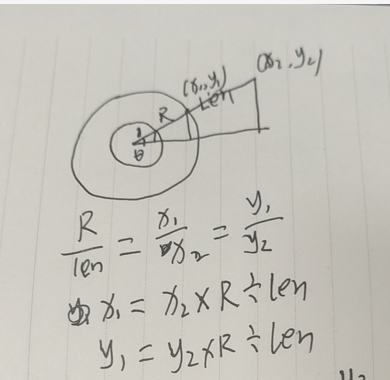 (x₂, y₂)
(x₁, y₁)
R
len
θ
R/len = x₁/x₂ = y₁/y₂
x₁ = x₂ × R ÷ len
y₁ = y₂ × R ÷ len